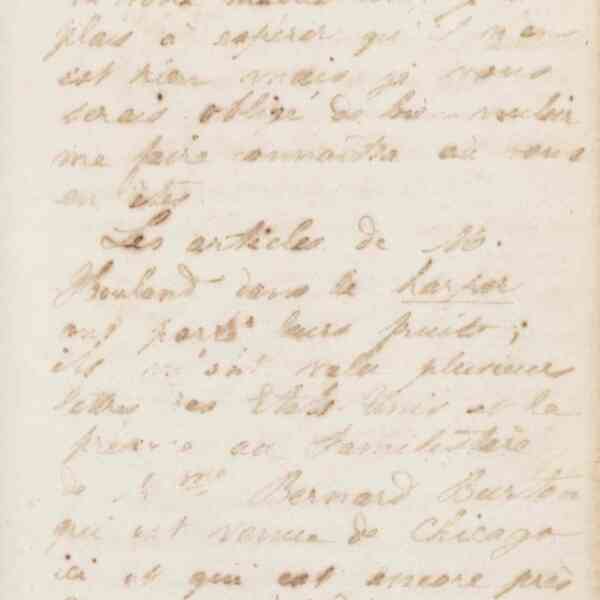 plais à espérer qu'il n'en
est rien mais je vous
serais obligé de bien vouloir
me faire connaître où vous
en êtes
Les articles de M.
Howland dans le harper
ont porté leurs fruits ;
ils m'ont valu plusieurs
lettres des Etats-Unis et la
présence au Familistère
de Mme Bernard Burton
qui est venue de Chicago
ici et qui est encore près